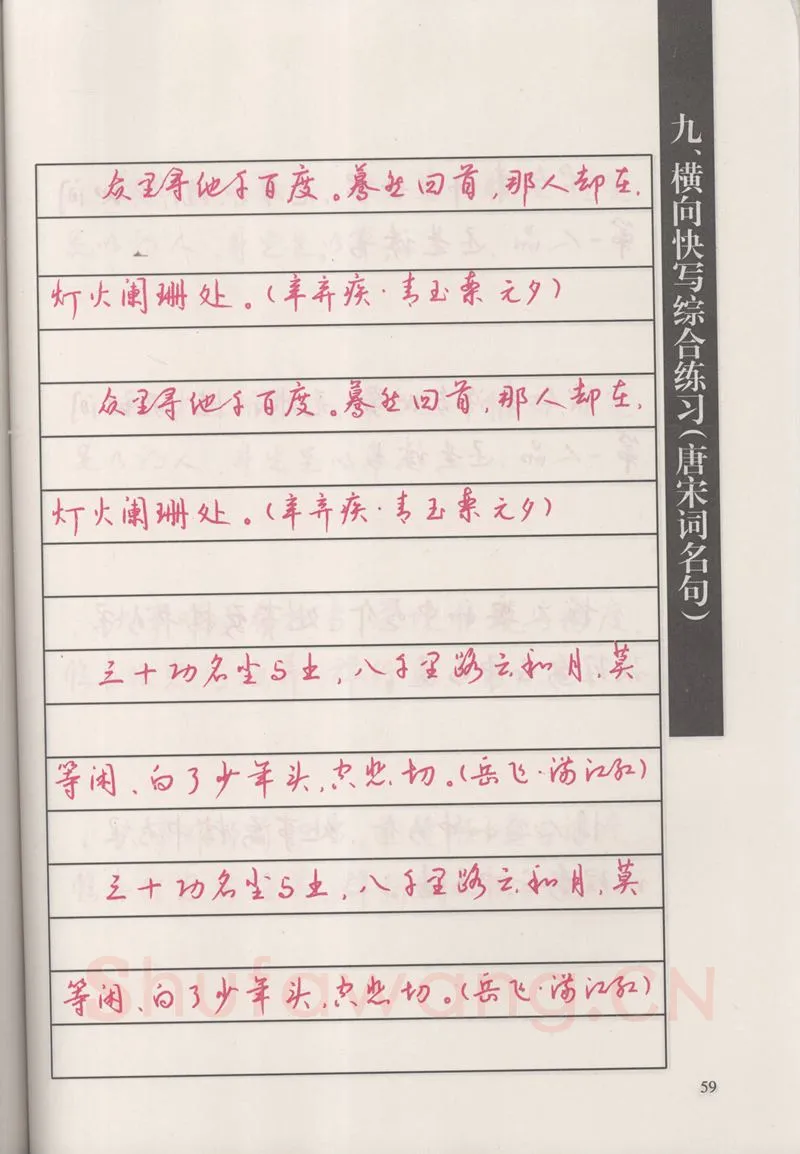 九、横向快写综合练习(唐宋词名句)
众里寻他千百度。蓦然回首,那人却在,
灯火阑珊处。(辛弃疾·青玉案 元夕)
众里寻他千百度。蓦然回首,那人却在,
灯火阑珊处。(辛弃疾·青玉案 元夕)
三十功名尘与土,八千里路云和月,莫
等闲、白了少年头,空悲切。(岳飞·满江红)
三十功名尘与土,八千里路云和月,莫
等闲、白了少年头,空悲切。(岳飞·满江红)
Shufawang.CN
59